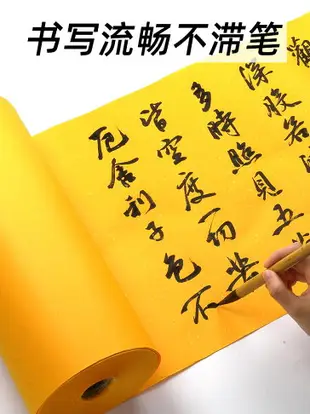 书写流畅不滞笔
觀
深般若
多時照見五
皆空度一切苦
厄舍利子色不